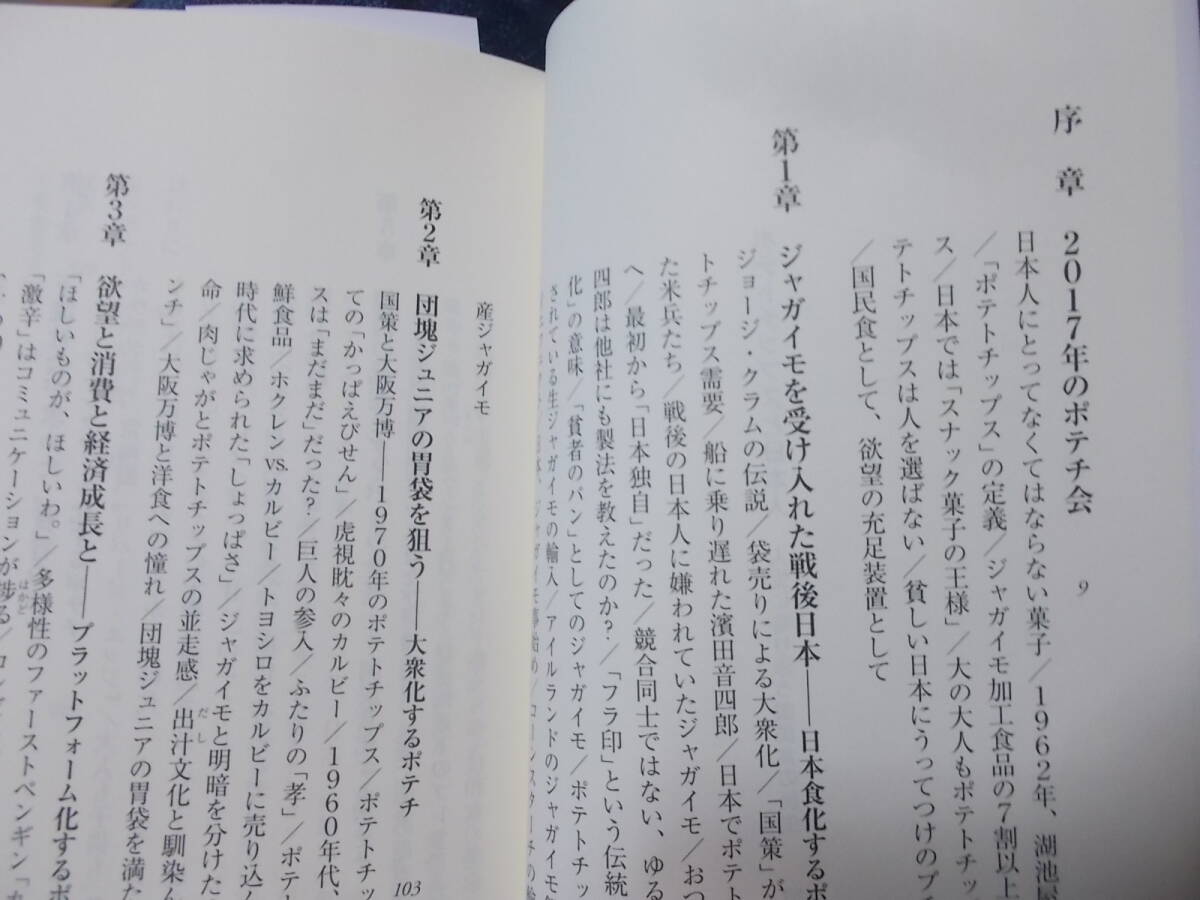 序章 2017年のポテチ会 9
日本人にとってなくてはならない菓子/1962年、湖池屋
/「ポテトチップス」の定義/ジャガイモ加工食品の7割以上
ス/日本では「スナック菓子の王様」/大の大人もポテトチッ
テトチップスは人を選ばない/貧しい日本にうってつけのプ
/国民食として、欲望の充足装置として
第1章 ジャガイモを受け入れた戦後日本――日本食化するポ
ジョージ・クラムの伝説/袋売りによる大衆化/「国策」が
トチップス需要/船に乗り遅れた濱田音四郎/日本でポテト
た米兵たち/戦後の日本人に嫌われていたジャガイモ/おつ
へ/最初から「日本独自」だった/競合同士ではない、ゆる
四郎は他社にも製法を教えたのか?/「フラ印」という伝統
化」の意味/「貧者のパン」としてのジャガイモ/ポテトチッ
されている生ジャガイモの輸入/アイルランドのジャガイモ
産ジャガイモ
第2章 団塊ジュニアの胃袋を狙う――大衆化するポテチ 103
国策と大阪万博――1970年のポテトチップス/ポテトチッ
ての「かっぱえびせん」/虎視眈々のカルビー/1960年代、
スは「まだまだ」だった?/巨人の参入/ふたりの「孝」/ポテ
鮮食品/ホクレンvs.カルビー/トヨシロをカルビーに売り込ん
時代に求められた「しょっぱさ」/ジャガイモと明暗を分けた
命/肉じゃがとポテトチップスの並走感/出汁文化と馴染ん
ンチ」/大阪万博と洋食への憧れ/団塊ジュニアの胃袋を満た
第3章 欲望と消費と経済成長と――プラットフォーム化するポ
「ほしいものが、ほしいわ。」/多様性のファーストペンギン「カ
「激辛」はコミュニケーションが捗る/コ